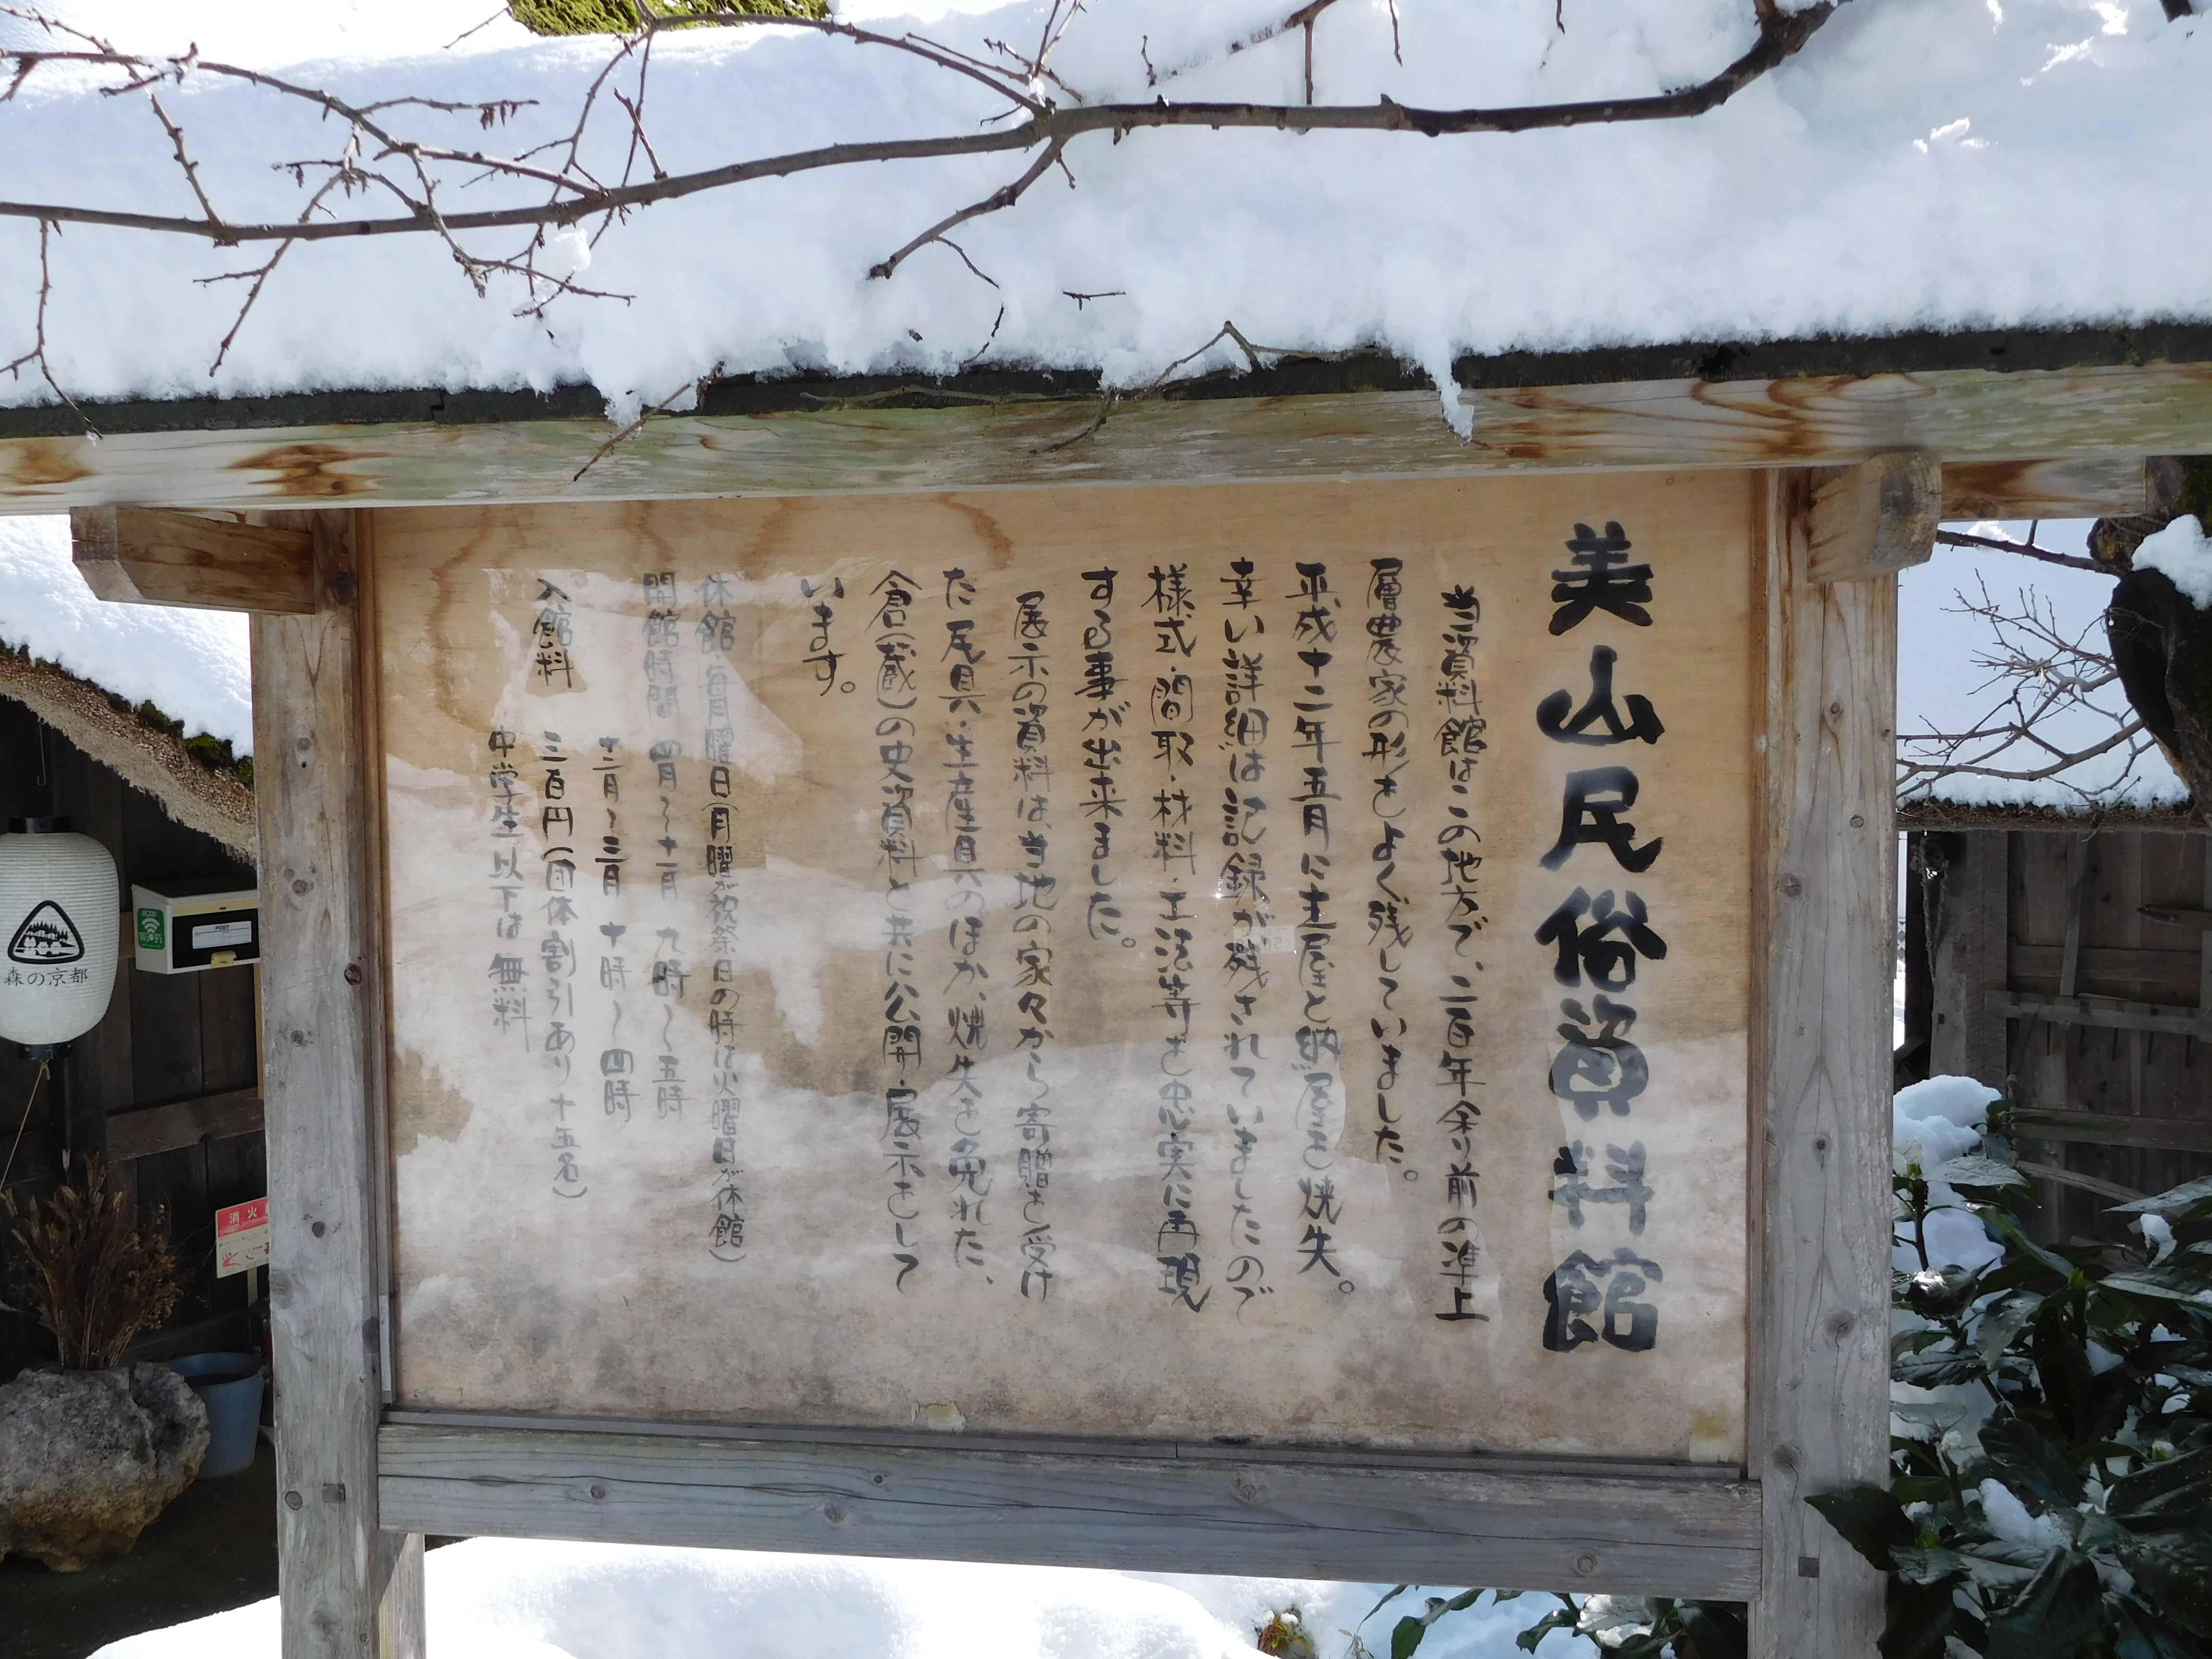 美山民俗資料館
当資料館はこの地方で、二百年余り前の準上
層農家の形をよく残していました。
平成十二年五月に主屋と納屋を焼失。
幸い詳細は記録が残されていましたので
様式・間取・材料・工法等を忠実に再現
する事が出来ました。
展示の資料は、当地の家々から寄贈を受け
た民具・生産具のほか、焼失を免れた、
倉(蔵)の史資料と共に公開・展示をして
います。
休館 毎月曜日(月曜が祝祭日の時は火曜日が休館)
開館時間 四月〜十一月 九時〜五時
十二月〜三月 十時〜四時
入館料 三百円(団体割引あり十五名)
中学生以下は無料
森の京都
Wi-Fi
POST
消火